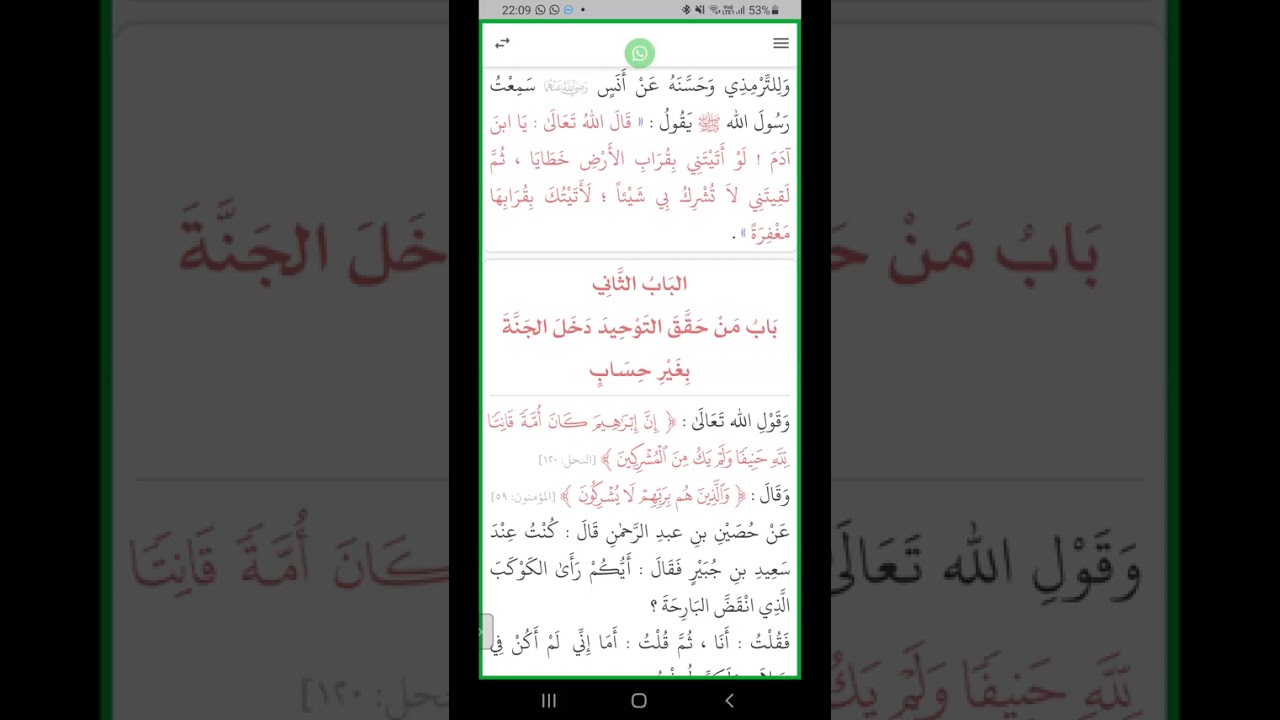 22:09
53%
وَلِلتِّرْمِذِي وَحَسَّنَهُ عَنْ أَنَسٍ رَضِيَ اللَّهُ عَنْهُمَا سَمِعْتُ
رَسُولَ الله ﷺ يَقُولُ : « قَالَ اللهُ تَعَالَىٰ : يَا ابنَ
آدَمَ ! لَوْ أَتَيْتَنِي بِقُرَابِ الأَرْضِ خَطَايَا ، ثُمَّ
لَقِيتَنِي لاَ تُشْرِكُ بِي شَيْئاً ؛ لَأَتَيْتُكَ بِقُرَابِهَا
مَغْفِرَةً » .
البَابُ الثَّانِي
بَابُ مَنْ حَقَّقَ التَوْحِيدَ دَخَلَ الجَنَّةَ
بِغَيْرِ حِسَابٍ
وَقَوْلِ الله تَعَالَىٰ : ﴿ إِنَّ إِبْرَٰهِيمَ كَانَ أُمَّةً قَانِتًا
لِلَّهِ حَنِيفًا وَلَمْ يَكُ مِنَ ٱلْمُشْرِكِينَ ﴾ [النحل: ١٢٠]
وَقَالَ : ﴿ وَٱلَّذِينَ هُم بِرَبِّهِمْ لَا يُشْرِكُونَ ﴾ [المؤمنون: ٥٩]
عَنْ حُصَيْنِ بنِ عبدِ الرَّحمٰنِ قَالَ : كُنْتُ عِنْدَ
سَعِيدِ بنِ جُبَيْرٍ فَقَالَ : أَيُّكُمْ رَأَىٰ الكَوْكَبَ
الَّذِي انْقَضَّ البَارِحَةَ ؟
فَقُلْتُ : أَنَا ، ثُمَّ قُلْتُ : أَمَا إِنِّي لَمْ أَكُنْ فِي